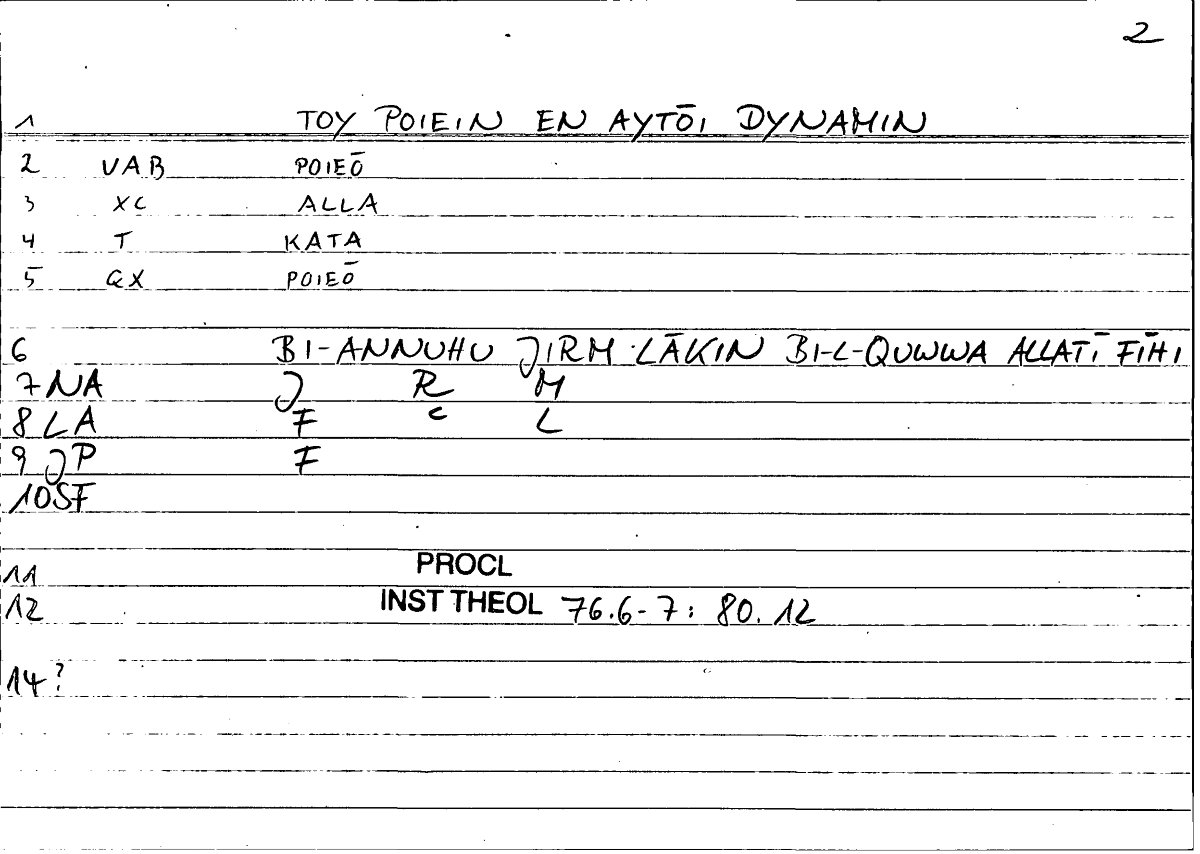 2
1 TOY POIEIN EN AYTŌI DYNAMIN
2 VAB POIEŌ
3 XC ALLA
4 T KATA
5 QX POIEŌ
6 BI-ANNUHU JIRM LĀKIN BI-L-QUWWA ALLATĪ FĪHI
7 NA J R M
8 LA F C L
9 JP F
10 SF
11 PROCL
12 INST THEOL 76.6-7: 80.12
14?